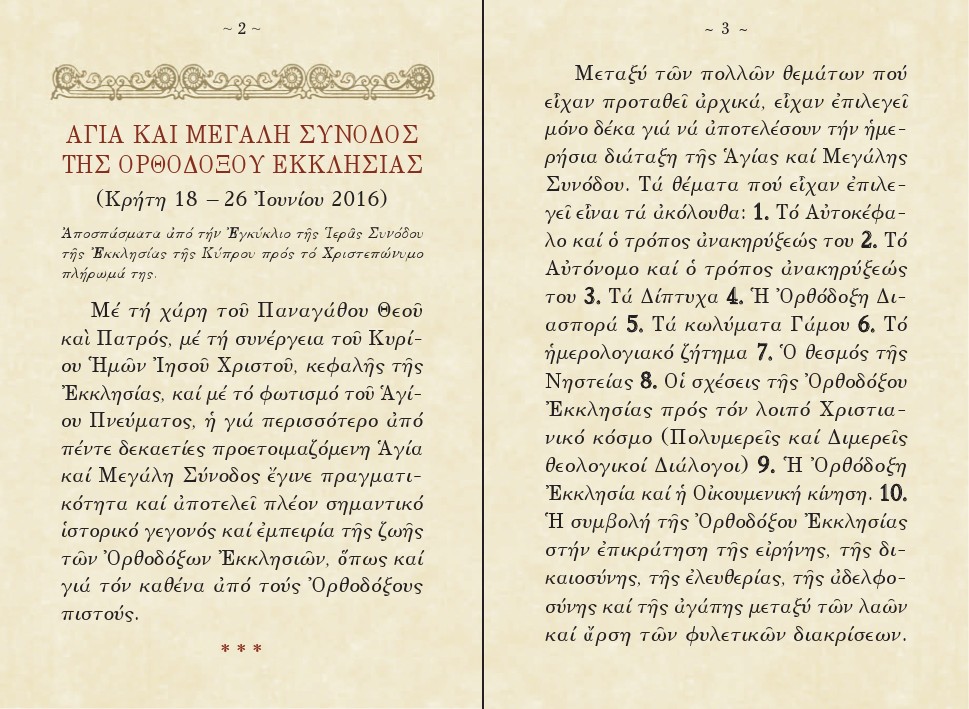 ~ 2 ~
ΑΓΙΑ ΚΑΙ ΜΕΓΑΛΗ ΣΥΝΟΔΟΣ
ΤΗΣ ΟΡΘΟΔΟΞΟΥ ΕΚΚΛΗΣΙΑΣ
(Κρήτη 18 – 26 Ἰουνίου 2016)
Ἀποσπάσματα ἀπό τήν Ἐγκύκλιο τῆς Ἱερᾶς Συνόδου
τῆς Ἐκκλησίας τῆς Κύπρου πρός τό Χριστεπώνυμο
πλήρωμά της.
Μέ τή χάρη τοῦ Παναγάθου Θεοῦ
καὶ Πατρός, μέ τή συνέργεια τοῦ Κυρί-
ου Ἡμῶν Ἰησοῦ Χριστοῦ, κεφαλῆς τῆς
Ἐκκλησίας, καί μέ τό φωτισμό τοῦ Ἁγί-
ου Πνεύματος, ἡ γιά περισσότερο ἀπό
πέντε δεκαετίες προετοιμαζόμενη Ἁγία
καί Μεγάλη Σύνοδος ἔγινε πραγματι-
κότητα καί ἀποτελεῖ πλέον σημαντικό
ἱστορικό γεγονός καί ἐμπειρία τῆς ζωῆς
τῶν Ὀρθοδόξων Ἐκκλησιῶν, ὅπως καί
γιά τόν καθένα ἀπό τούς Ὀρθοδόξους
πιστούς.
* * *
~ 3 ~
Μεταξύ τῶν πολλῶν θεμάτων πού
εἶχαν προταθεῖ ἀρχικά, εἶχαν ἐπιλεγεῖ
μόνο δέκα γιά νά ἀποτελέσουν τήν ἡμε-
ρήσια διάταξη τῆς Ἁγίας καί Μεγάλης
Συνόδου. Τά θέματα πού εἶχαν ἐπιλε-
γεῖ εἶναι τά ἀκόλουθα: 1. Τό Αὐτοκέφα-
λο καί ὁ τρόπος ἀνακηρύξεώς του 2. Τό
Αὐτόνομο καί ὁ τρόπος ἀνακηρύξεώς
του 3. Τά Δίπτυχα 4. Ἡ Ὀρθόδοξη Δι-
ασπορά 5. Τά κωλύματα Γάμου 6. Τό
ἡμερολογιακό ζήτημα 7. Ὁ θεσμός τῆς
Νηστείας 8. Οἱ σχέσεις τῆς Ὀρθοδόξου
Ἐκκλησίας πρός τόν λοιπό Χριστια-
νικό κόσμο (Πολυμερεῖς καί Διμερεῖς
θεολογικοί Διάλογοι) 9. Ἡ Ὀρθόδοξη
Ἐκκλησία καί ἡ Οἰκουμενική κίνηση. 10.
Ἡ συμβολή τῆς Ὀρθοδόξου Ἐκκλησίας
στήν ἐπικράτηση τῆς εἰρήνης, τῆς δι-
καιοσύνης, τῆς ἐλευθερίας, τῆς ἀδελφο-
σύνης καί τῆς ἀγάπης μεταξύ τῶν λαῶν
καί ἄρση τῶν φυλετικῶν διακρίσεων.